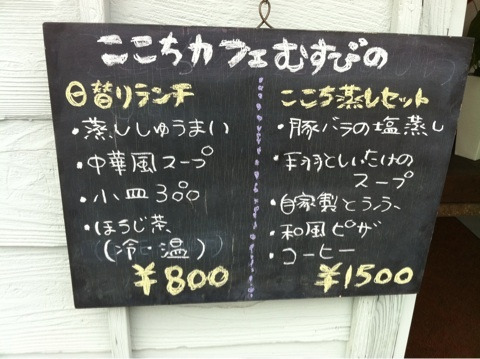 ここちカフェむすびの
日替りランチ
・蒸ししゅうまい
・中華風スープ
・小皿3つ
・ほうじ茶
(冷・温)
¥800
ここち蒸しセット
・豚バラの塩蒸し
・手羽としいたけの
スープ
・自家製とうふ
・和風ピザ
・コーヒー
¥1500